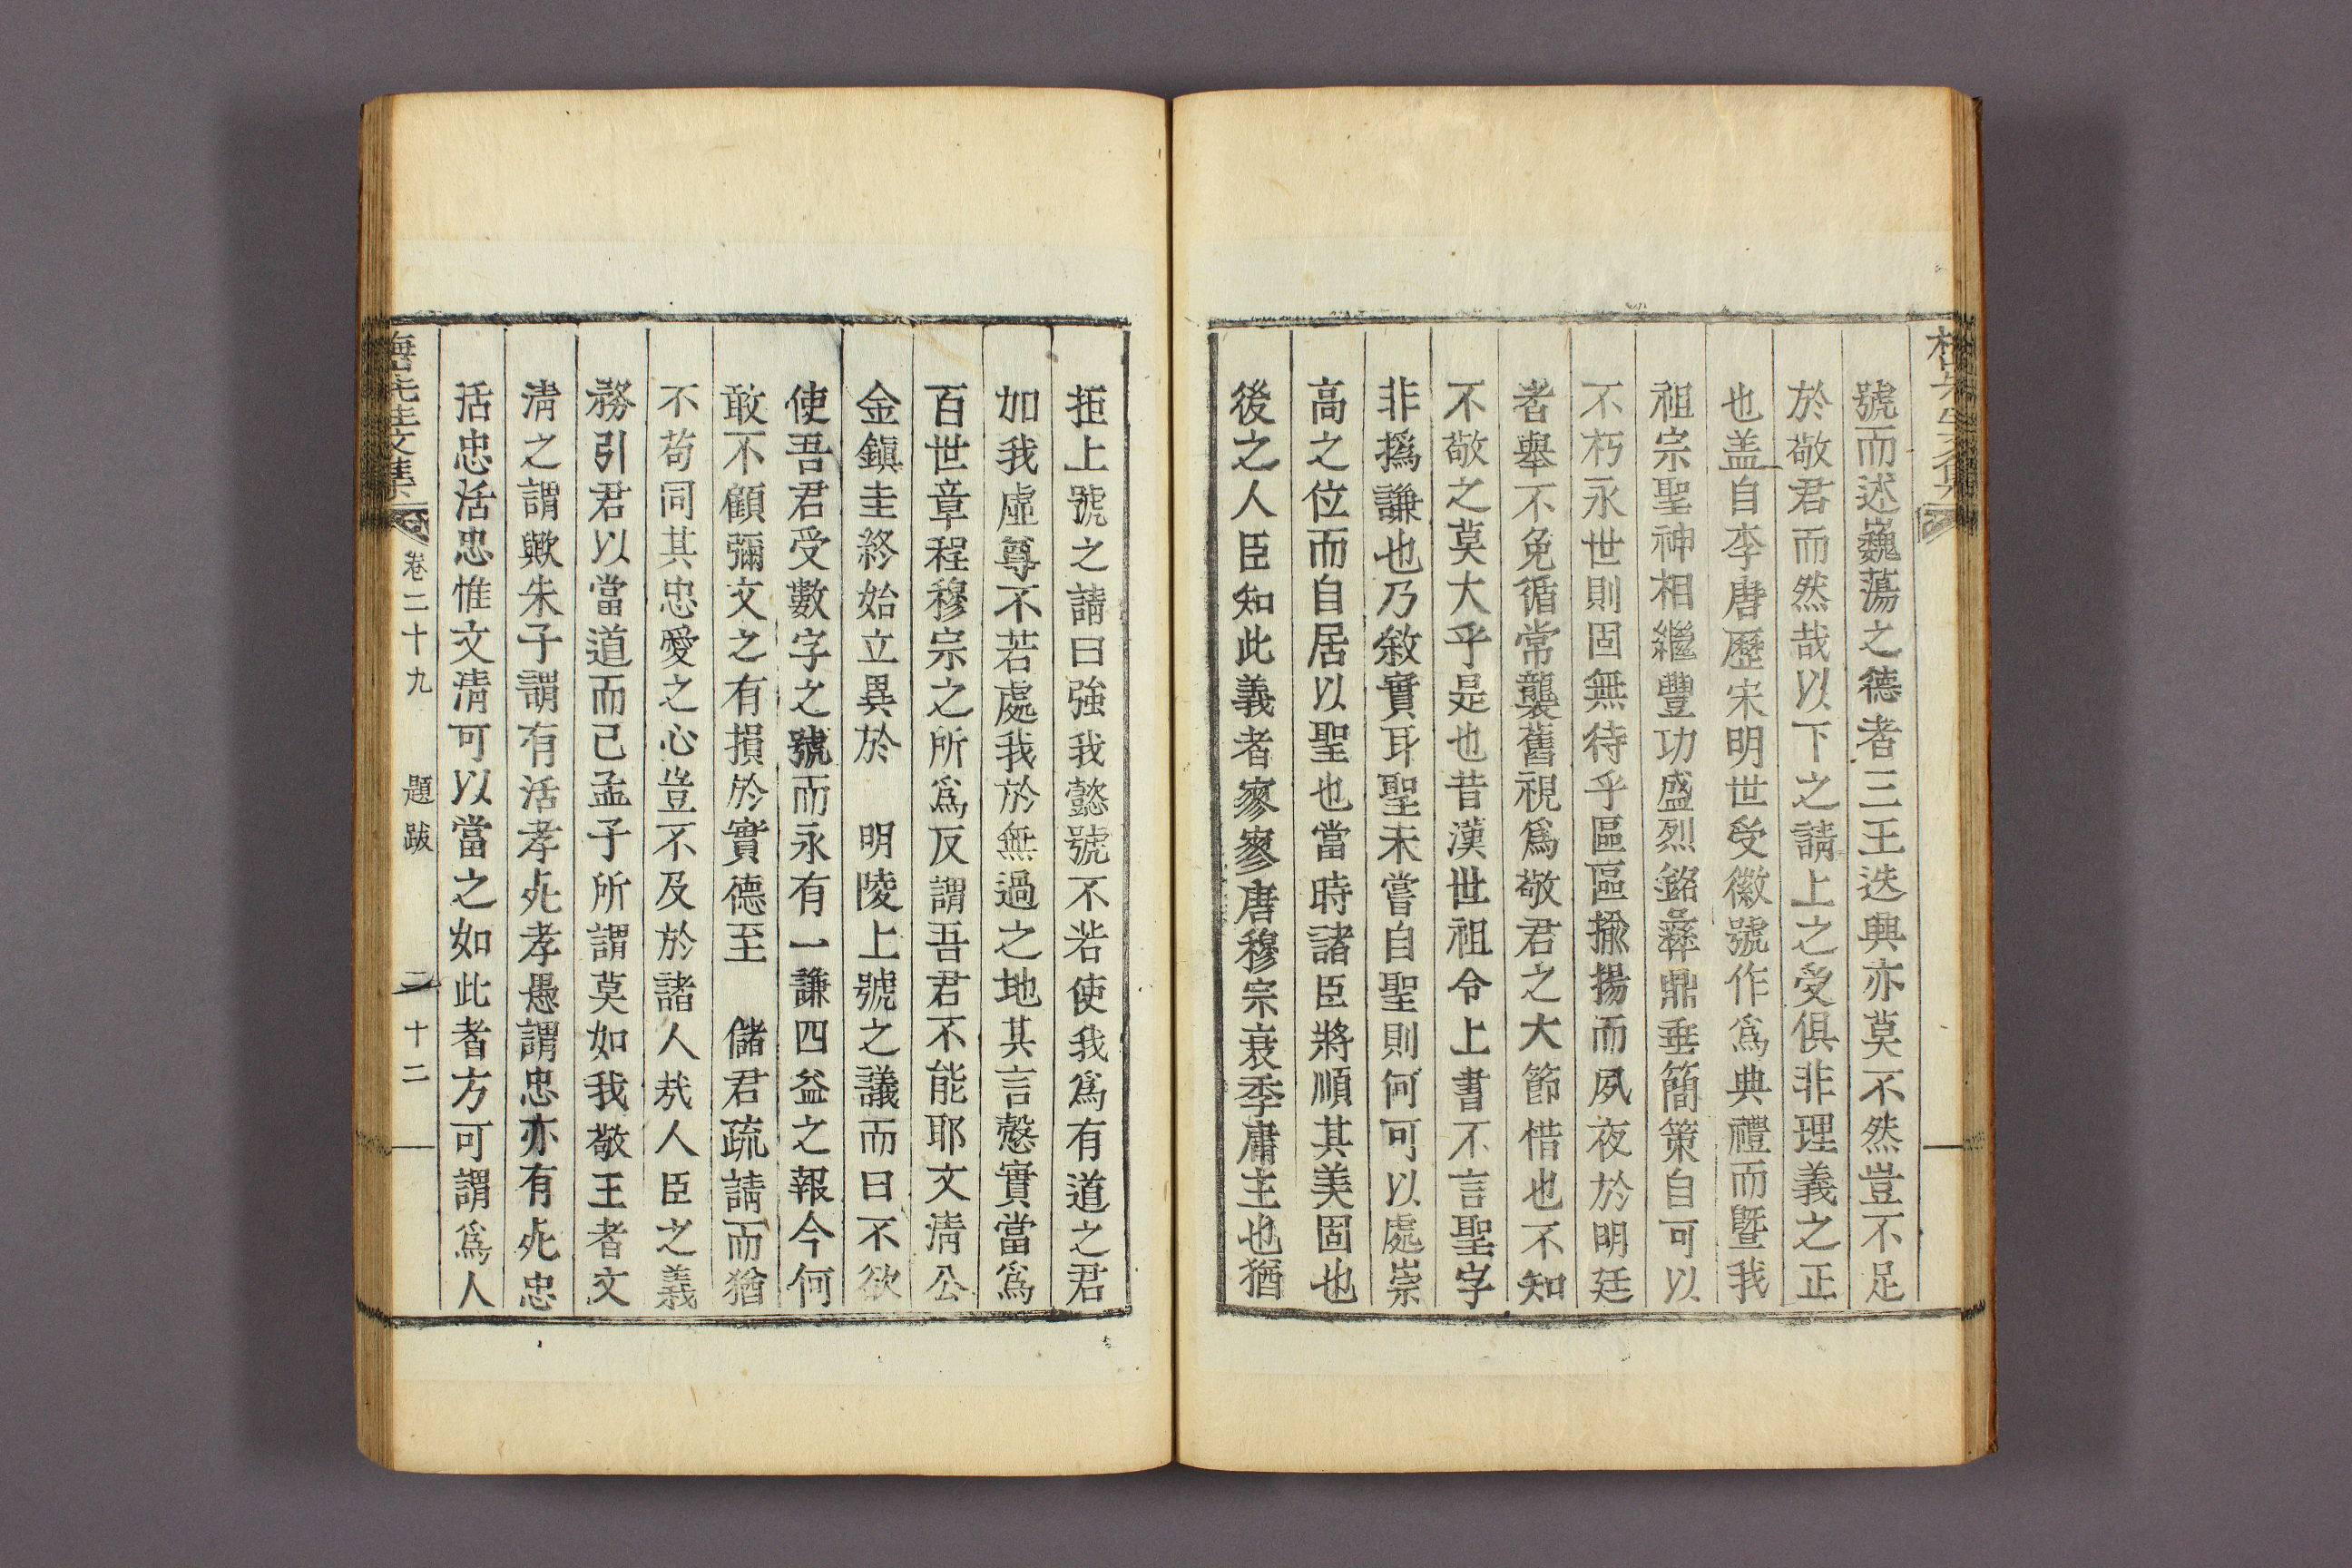 號而述巍蕩之德者三王迭興亦莫不然豈不足
於敬君而然哉以下之請上之受俱非理義之正
也盖自李唐歷宋明世受徽號作爲典禮而曁我
祖宗聖神相繼豐功盛烈銘彝鼎垂簡策自可以
不朽永世則固無待乎區區揄揚而夙夜於明廷
者舉不免循常襲舊視爲敬君之大節惜也不知
不敬之莫大乎是也昔漢世祖令上書不言聖字
非撝謙也乃敘實耳聖未嘗自聖則何可以處崇
高之位而自居以聖也當時諸臣將順其美固也
後之人臣知此義者寥寥唐穆宗衰季庸主也猶
拒上號之請曰強我懿號不若使我爲有道之君
加我虛尊不若處我於無過之地其言慤實當爲
百世章程穆宗之所爲反謂吾君不能耶文淸公
金鎭圭終始立異於 明陵上號之議而曰不欲
使吾君受數字之號而永有一謙四益之報今何
敢不顧彌文之有損於實德至 儲君疏請而猶
不苟同其忠愛之心豈不及於諸人㢤人臣之義
務引君以當道而已孟子所謂莫如我敬王者文
淸之謂歟朱子謂有活孝死孝愚謂忠亦有死忠
活忠活忠惟文淸可以當之如此者方可謂爲人
先生文集 卷二十九 題跋 十二